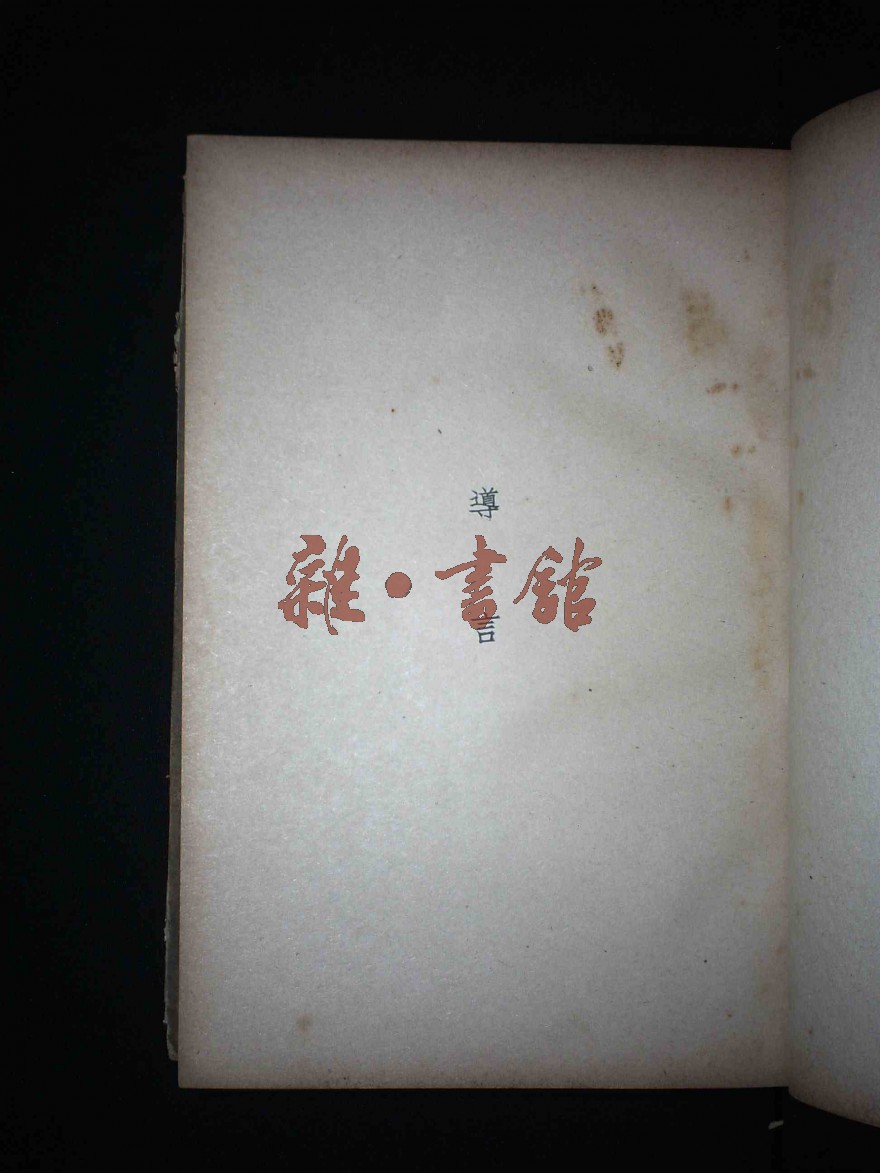 導言
雜·書館